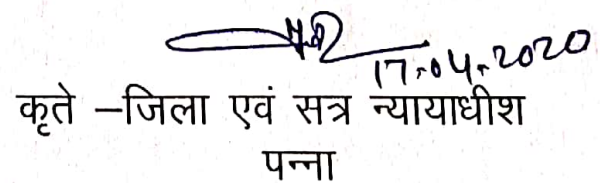 17.04.2020
कृते –जिला एवं सत्र न्यायाधीश
पन्ना